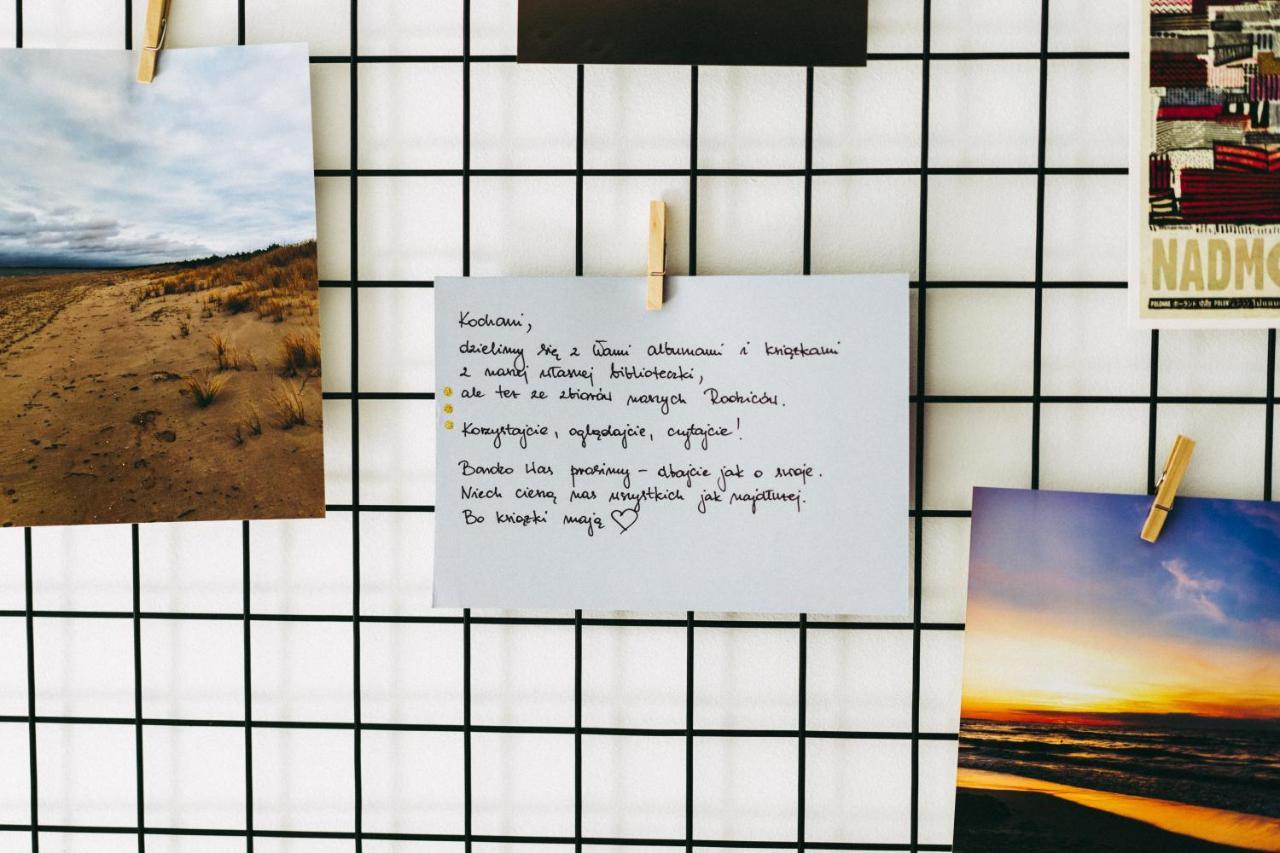 Kochani,
dzielimy się z Wami albumami i książkami
z naszej własnej biblioteczki,
ale też ze zbiorów naszych Rodziców.
Korzystajcie, oglądajcie, czytajcie!
Bardzo Was prosimy – dbajcie jak o swoje.
Niech cieszą nas wszystkich jak najdłużej.
Bo książki mają ♡
NADMO
POLONNE ポーランド POLEN